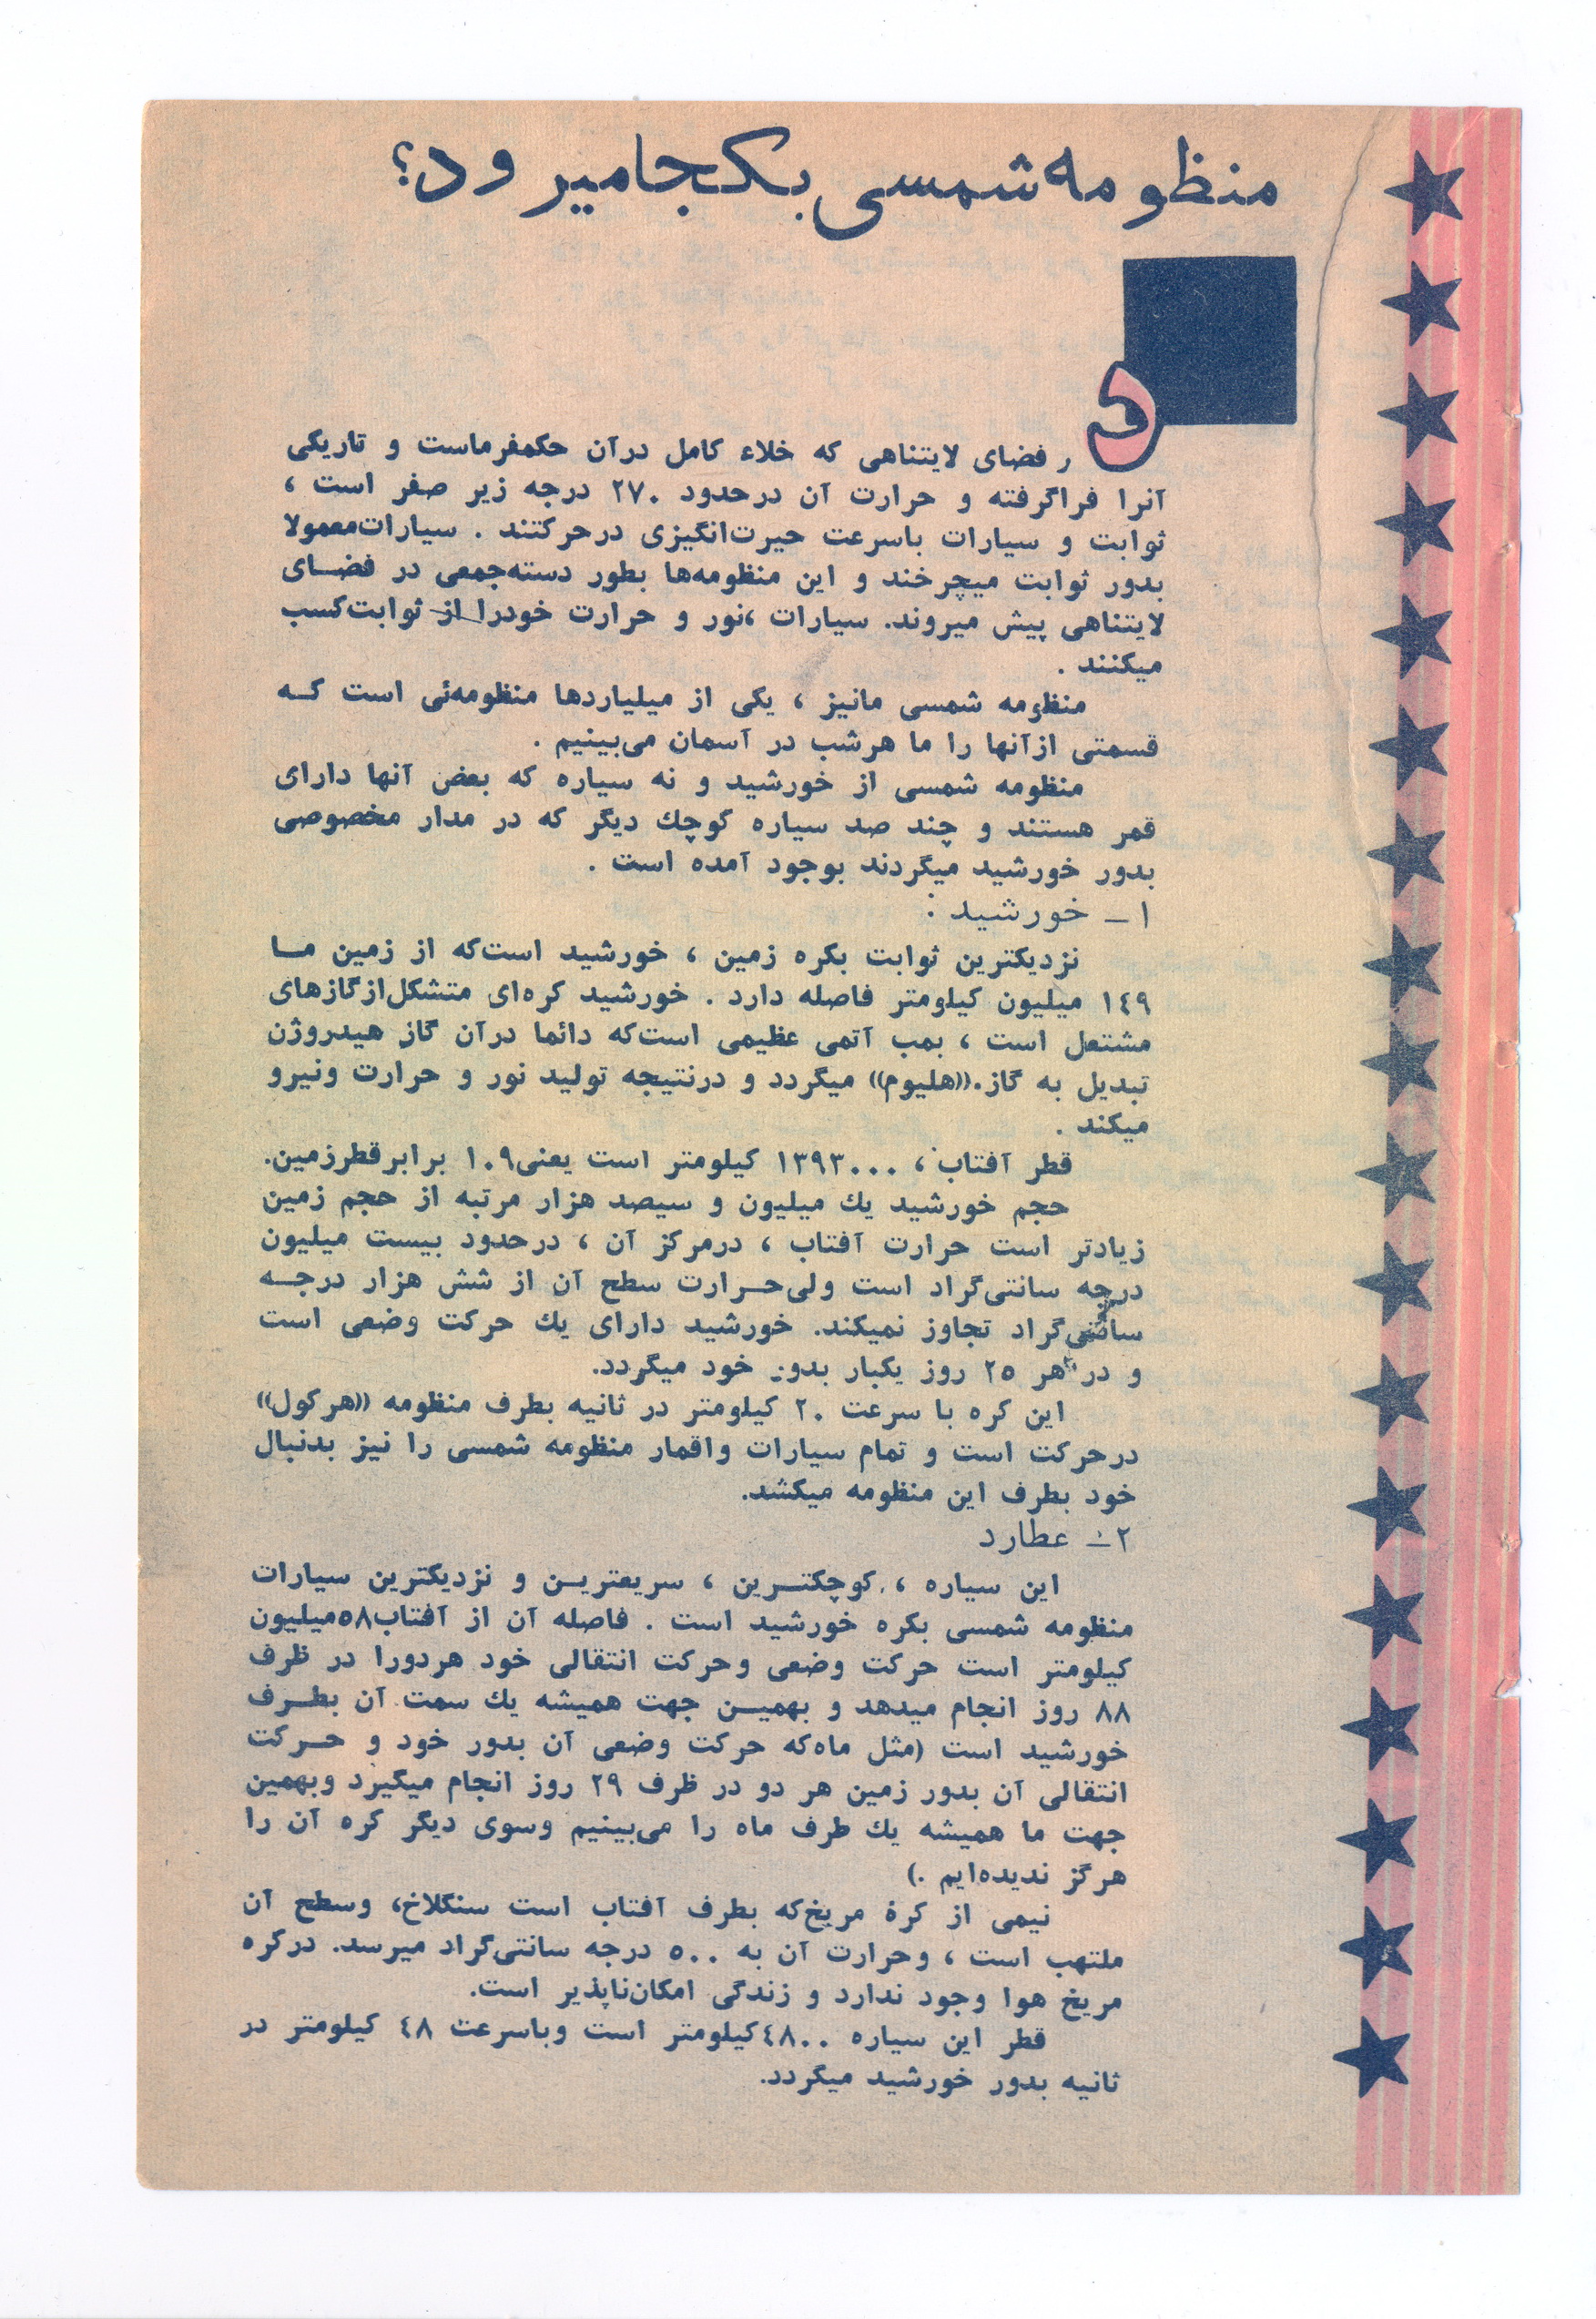 منظومه شمسی بکجا میرود؟
در فضای لایتناهی که خلاء کامل درآن حکمفرماست و تاریکی
آنرا فراگرفته و حرارت آن درحدود ۲۷۰ درجه زیر صفر است ،
ثوابت و سیارات باسرعت حیرت‌انگیزی درحرکتند . سیارات‌معمولا
بدور ثوابت میچرخند و این منظومه‌ها بطور دسته‌جمعی در فضـای
لایتناهی پیش میروند. سیارات ،نور و حرارت خودرا از ثوابت‌کسب
میکنند .
منظومه شمسی مانیز ، یکی از میلیاردها منظومه‌ئی است کـه
قسمتی ازآنها را ما هرشب در آسمان می‌بینیم .
منظومه شمسی از خورشید و نه سیاره که بعض آنها دارای
قمر هستند و چند صد سیاره کوچك دیگر که در مدار مخصوصی
بدور خورشید میگردند بوجود آمده است .
۱ـ خورشید :
نزدیکترین ثوابت بکره زمین ، خورشید است‌که از زمین مـا
۱٤۹ میلیون کیلومتر فاصله دارد . خورشید کره‌ای متشکل‌ازگازهای
مشتعل است ، بمب آتمی عظیمی است‌که دائما درآن گاز هیدروژن
تبدیل به گاز.((هلیوم)) میگردد و درنتیجه تولید نور و حرارت ونیرو
میکند .
قطر آفتاب ، ۱۳۹۳۰۰۰ کیلومتر است یعنی۱۰۹ برابرقطرزمین.
حجم خورشید یك میلیون و سیصد هزار مرتبه از حجم زمین
زیادتر است حرارت آفتاب ، درمرکز آن ، درحدود بیست میلیون
درجه سانتی‌گراد است ولی‌حـرارت سطح آن از شش هزار درجـه
سانتی‌گراد تجاوز نمیکند. خورشید دارای یك حرکت وضعی است
و در هر ۲٥ روز یکبار بدور خود میگردد.
این کره با سرعت ۲۰ کیلومتر در ثانیه بطرف منظومه ((هرکول))
درحرکت است و تمام سیارات واقمار منظومه شمسی را نیز بدنبال
خود بطرف این منظومه میکشد.
۲ـ عطارد
این سیاره ، کوچکتـرین ، سریعتریـن و نزدیکترین سیارات
منظومه شمسی بکره خورشید است . فاصله آن از آفتاب٥۸میلیون
کیلومتر است حرکت وضعی وحرکت انتقالی خود هردورا در ظرف
۸۸ روز انجام میدهد و بهمیـن جهت همیشه یك سمت آن بطـرف
خورشید است (مثل ماه‌که حرکت وضعی آن بدور خود و حـرکت
انتقالی آن بدور زمین هر دو در ظرف ۲۹ روز انجام میگیرد وبهمین
جهت ما همیشه یك طرف ماه را می‌بینیم وسوی دیگر کره آن را
هرگز ندیده‌ایم .)
نیمی از کرۀ مریخ‌که بطرف آفتاب است سنگلاخ، وسطح آن
ملتهب است ، وحرارت آن به ٥۰۰ درجه سانتی‌گراد میرسد. درکره
مریخ هوا وجود ندارد و زندگی امکان‌ناپذیر است.
قطر این سیاره ٤۸۰۰کیلومتر است وباسرعت ٤۸ کیلومتر در
ثانیه بدور خورشید میگردد.